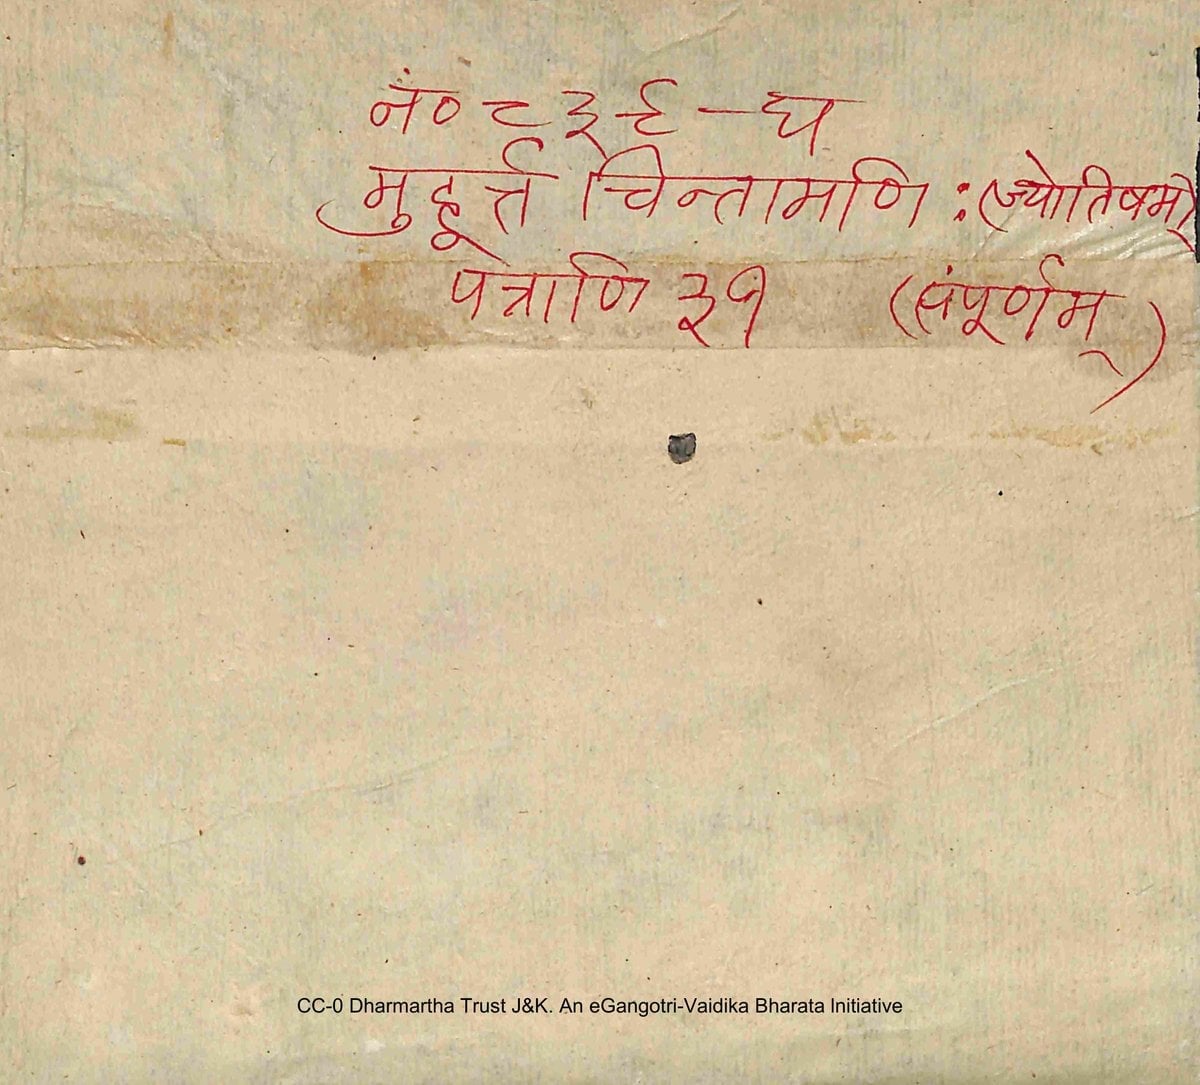 नं० ८३६-घ
मुहूर्त्त चिन्तामणि : (ज्योतिषम्)
पत्राणि ३१ (संपूर्णम्)
CC-0 Dharmartha Trust J&K. An eGangotri-Vaidika Bharata Initiative